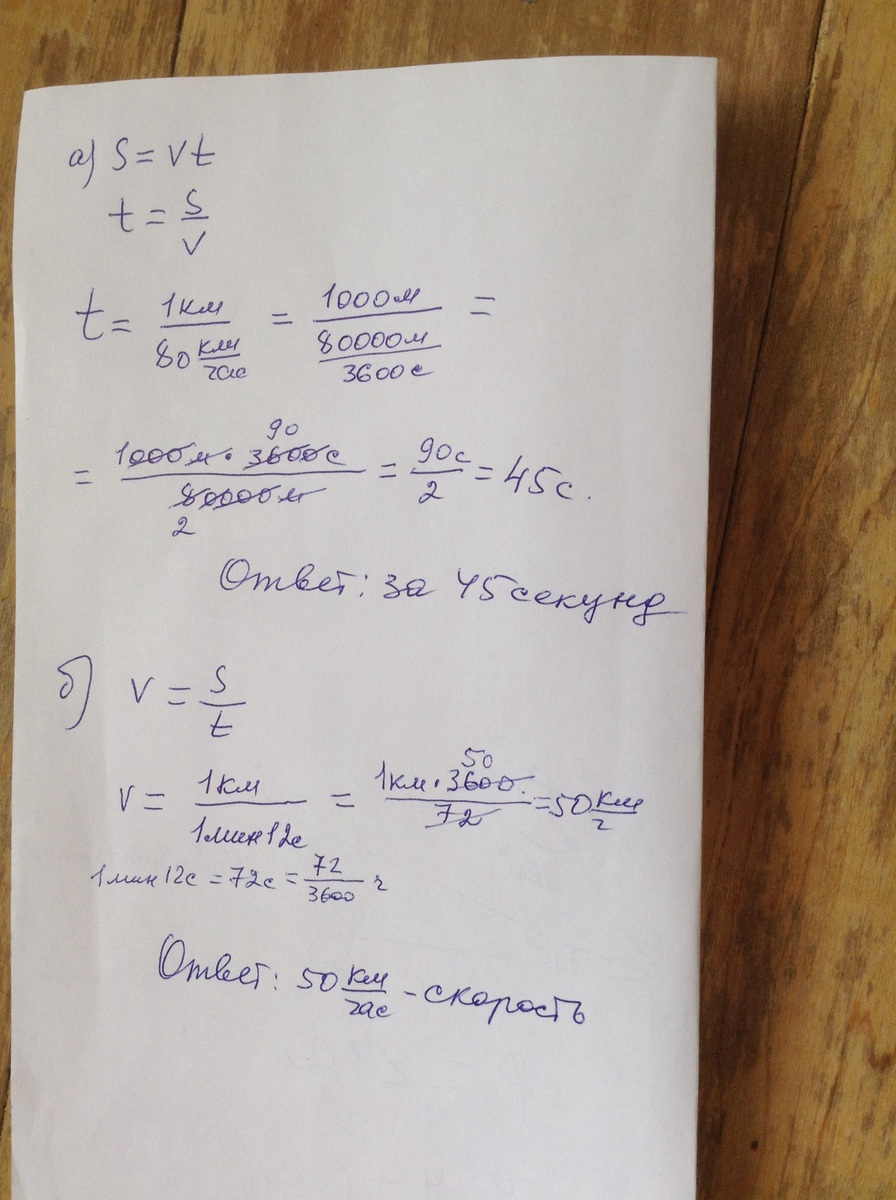 а) S = vt
t = S/v
t = 1км/(80 км/час) = 1000м/(80000м/3600с) =
= (1000м · 3600с 90)/(80000м 2) = 90с/2 = 45с.
Ответ: за 45 секунд
б) v = S/t
v = 1км/(1мин12с) = (1км · 3600 50)/72 = 50 км/ч
1мин 12с = 72с = 72/3600 ч
Ответ: 50 км/час - скорость